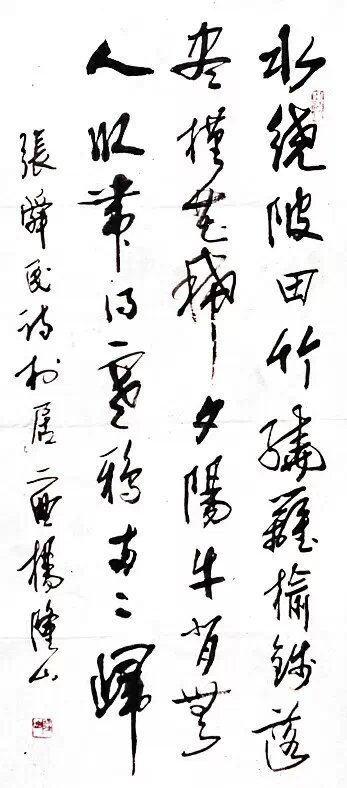 水繞陂田竹繞籬榆錢落
尽槿花稀夕陽牛背無
人臥帶得寒鴉両々歸
張舜民詩村居 楊隆山